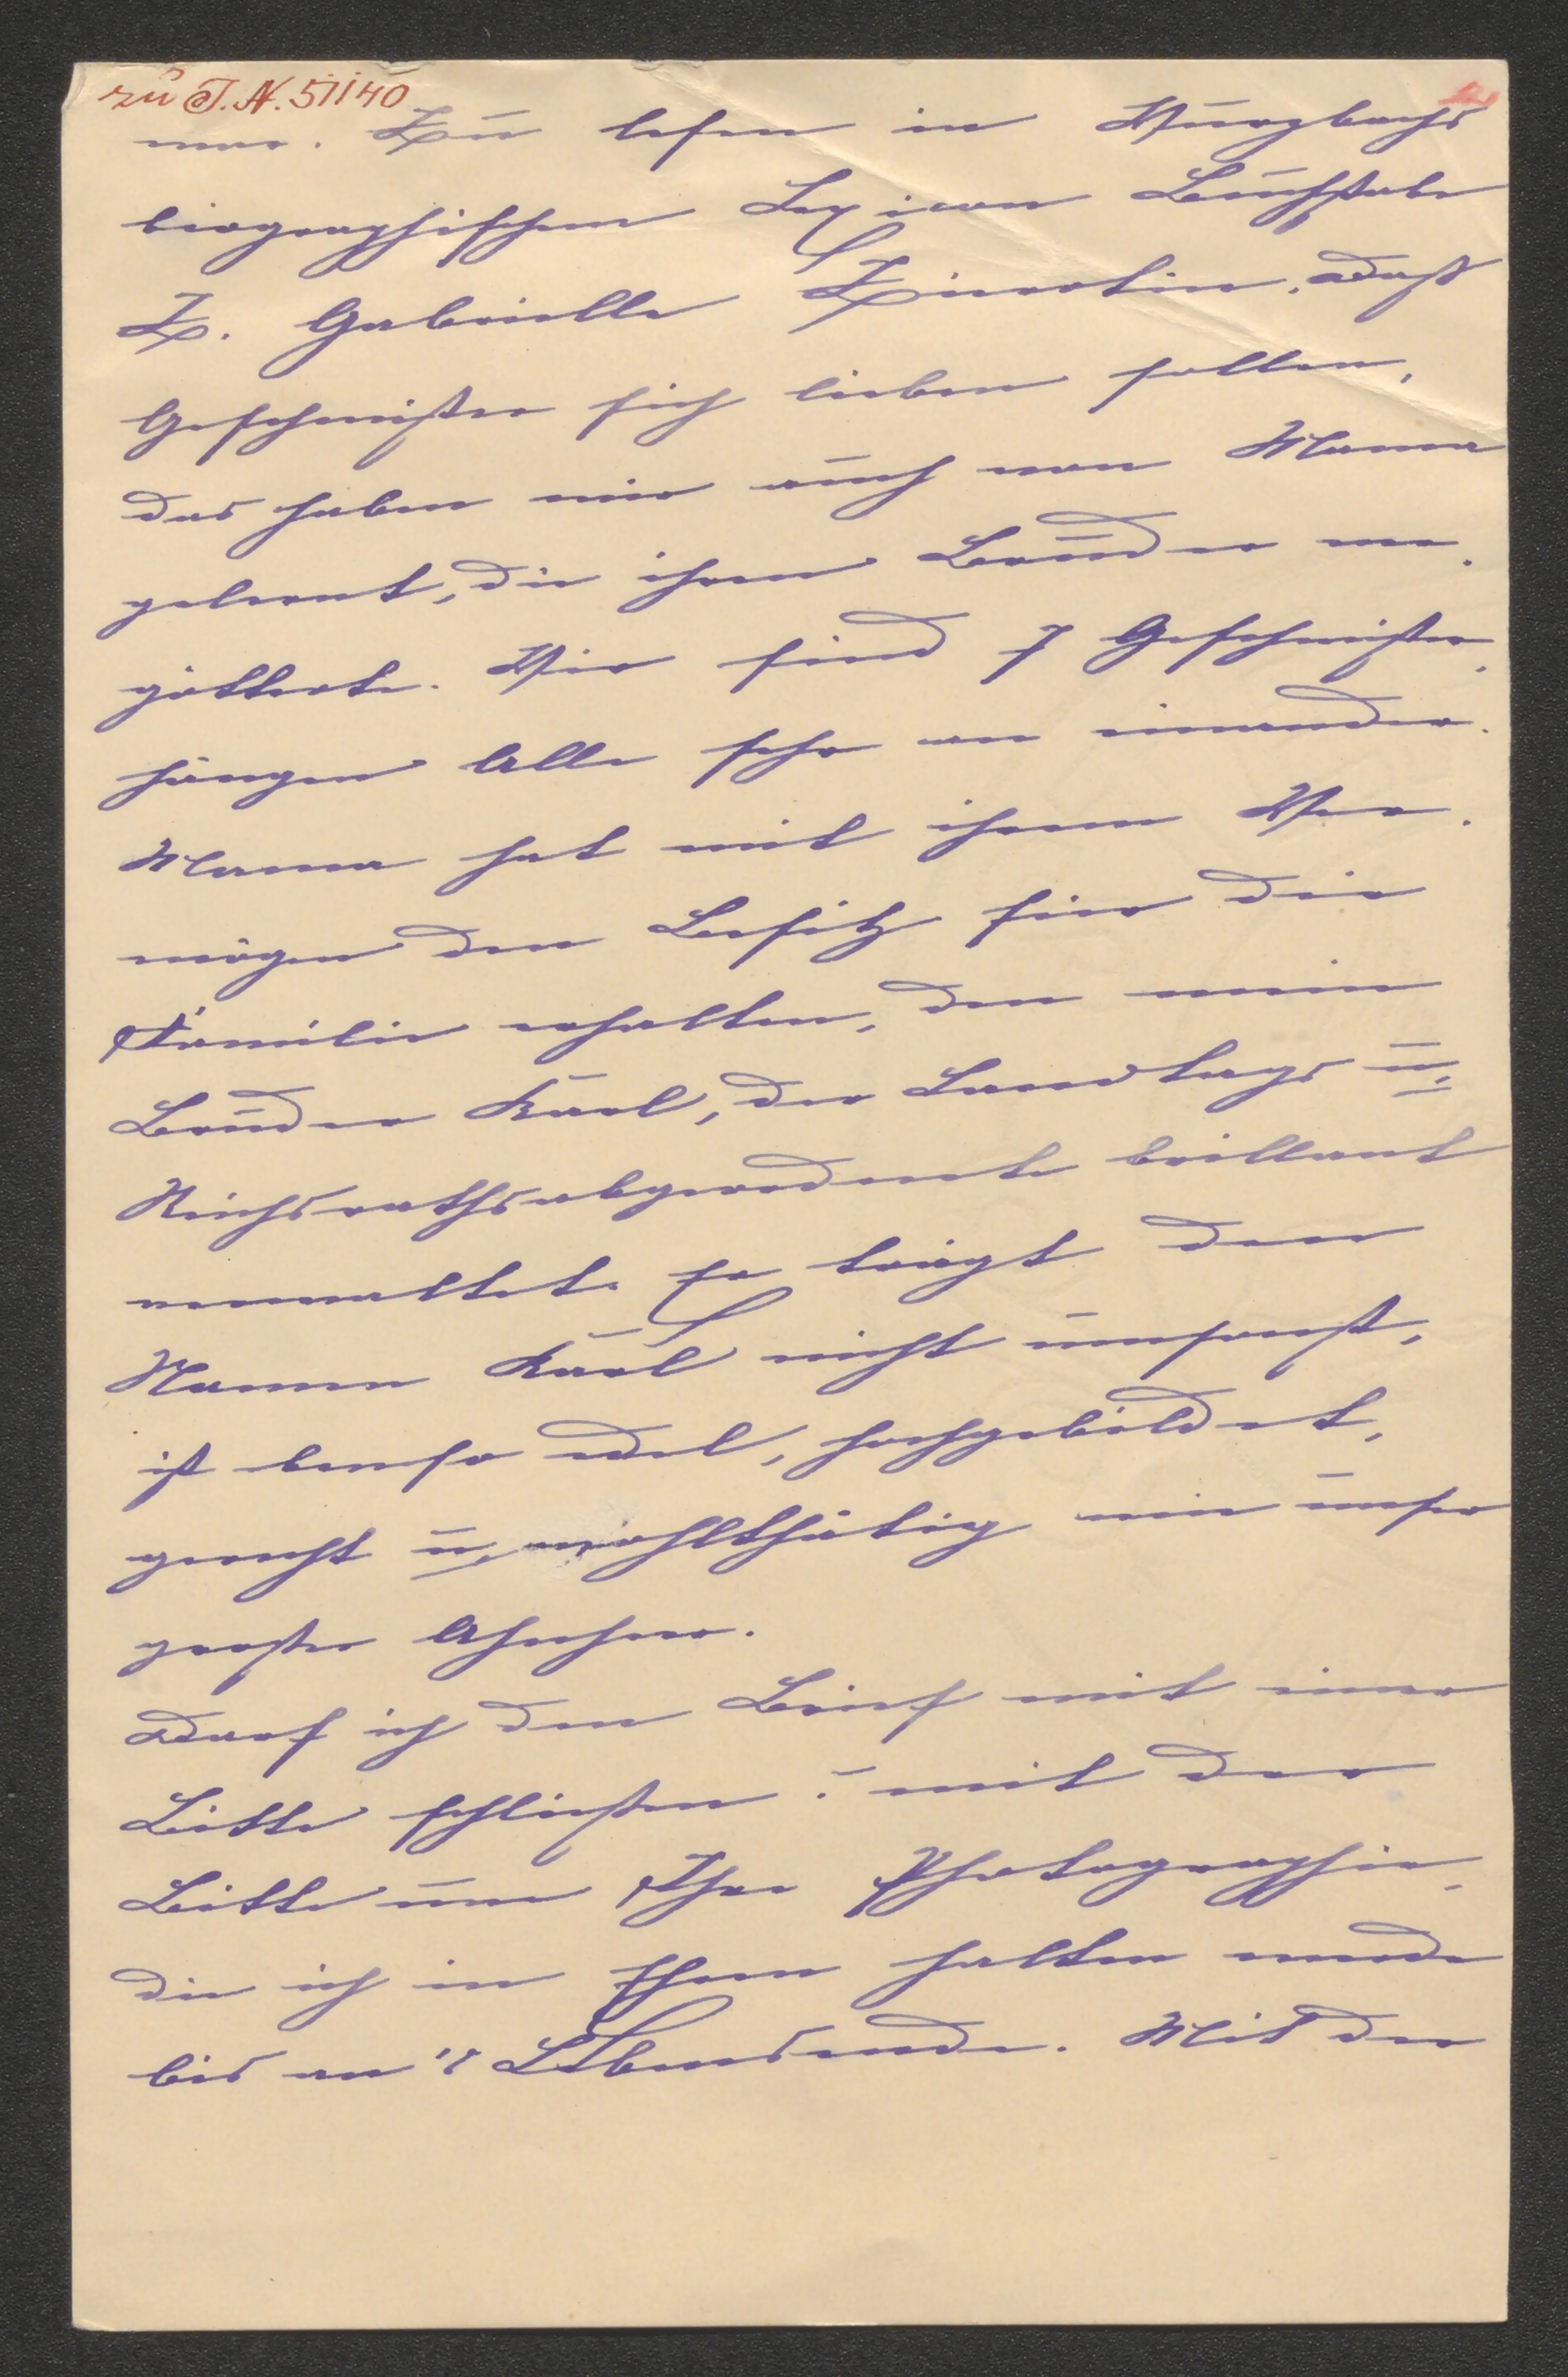 zu I.N. 51140
war. Zu lesen in Wurzbachs
biographischem Lexicon Buchstabe
Z. Gabrielle Zierotin. Daß
Geschwister sich lieben sollen,
das haben wir auch von Mama
gelernt, die ihren Bruder ver-
götterte. Wir sind 7 Geschwister,
hängen Alle sehr an einander.
Mama hat mit ihrem Ver-
mögen den Besitz für die
Familie erhalten, den mein
Bruder Karl, der Landtags u.
Reichsrathsabgeordnete brillant
verwaltet. Er trägt den
Namen Karl nicht umsonst,
ist ebenso edel, hochgebildet,
gerecht u. wohlthätig wie unser
großer Ahnherr.
Darf ich den Brief mit einer
Bitte schließen? mit der
Bitte um Ihre Photographie,
die ich in Ehren halten werde
bis an's Lebensende. Mit der